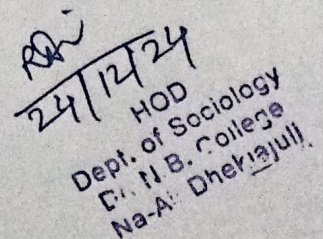 24/12/24
HOD
Dept. of Sociology
N B. College
Dhekiajuli